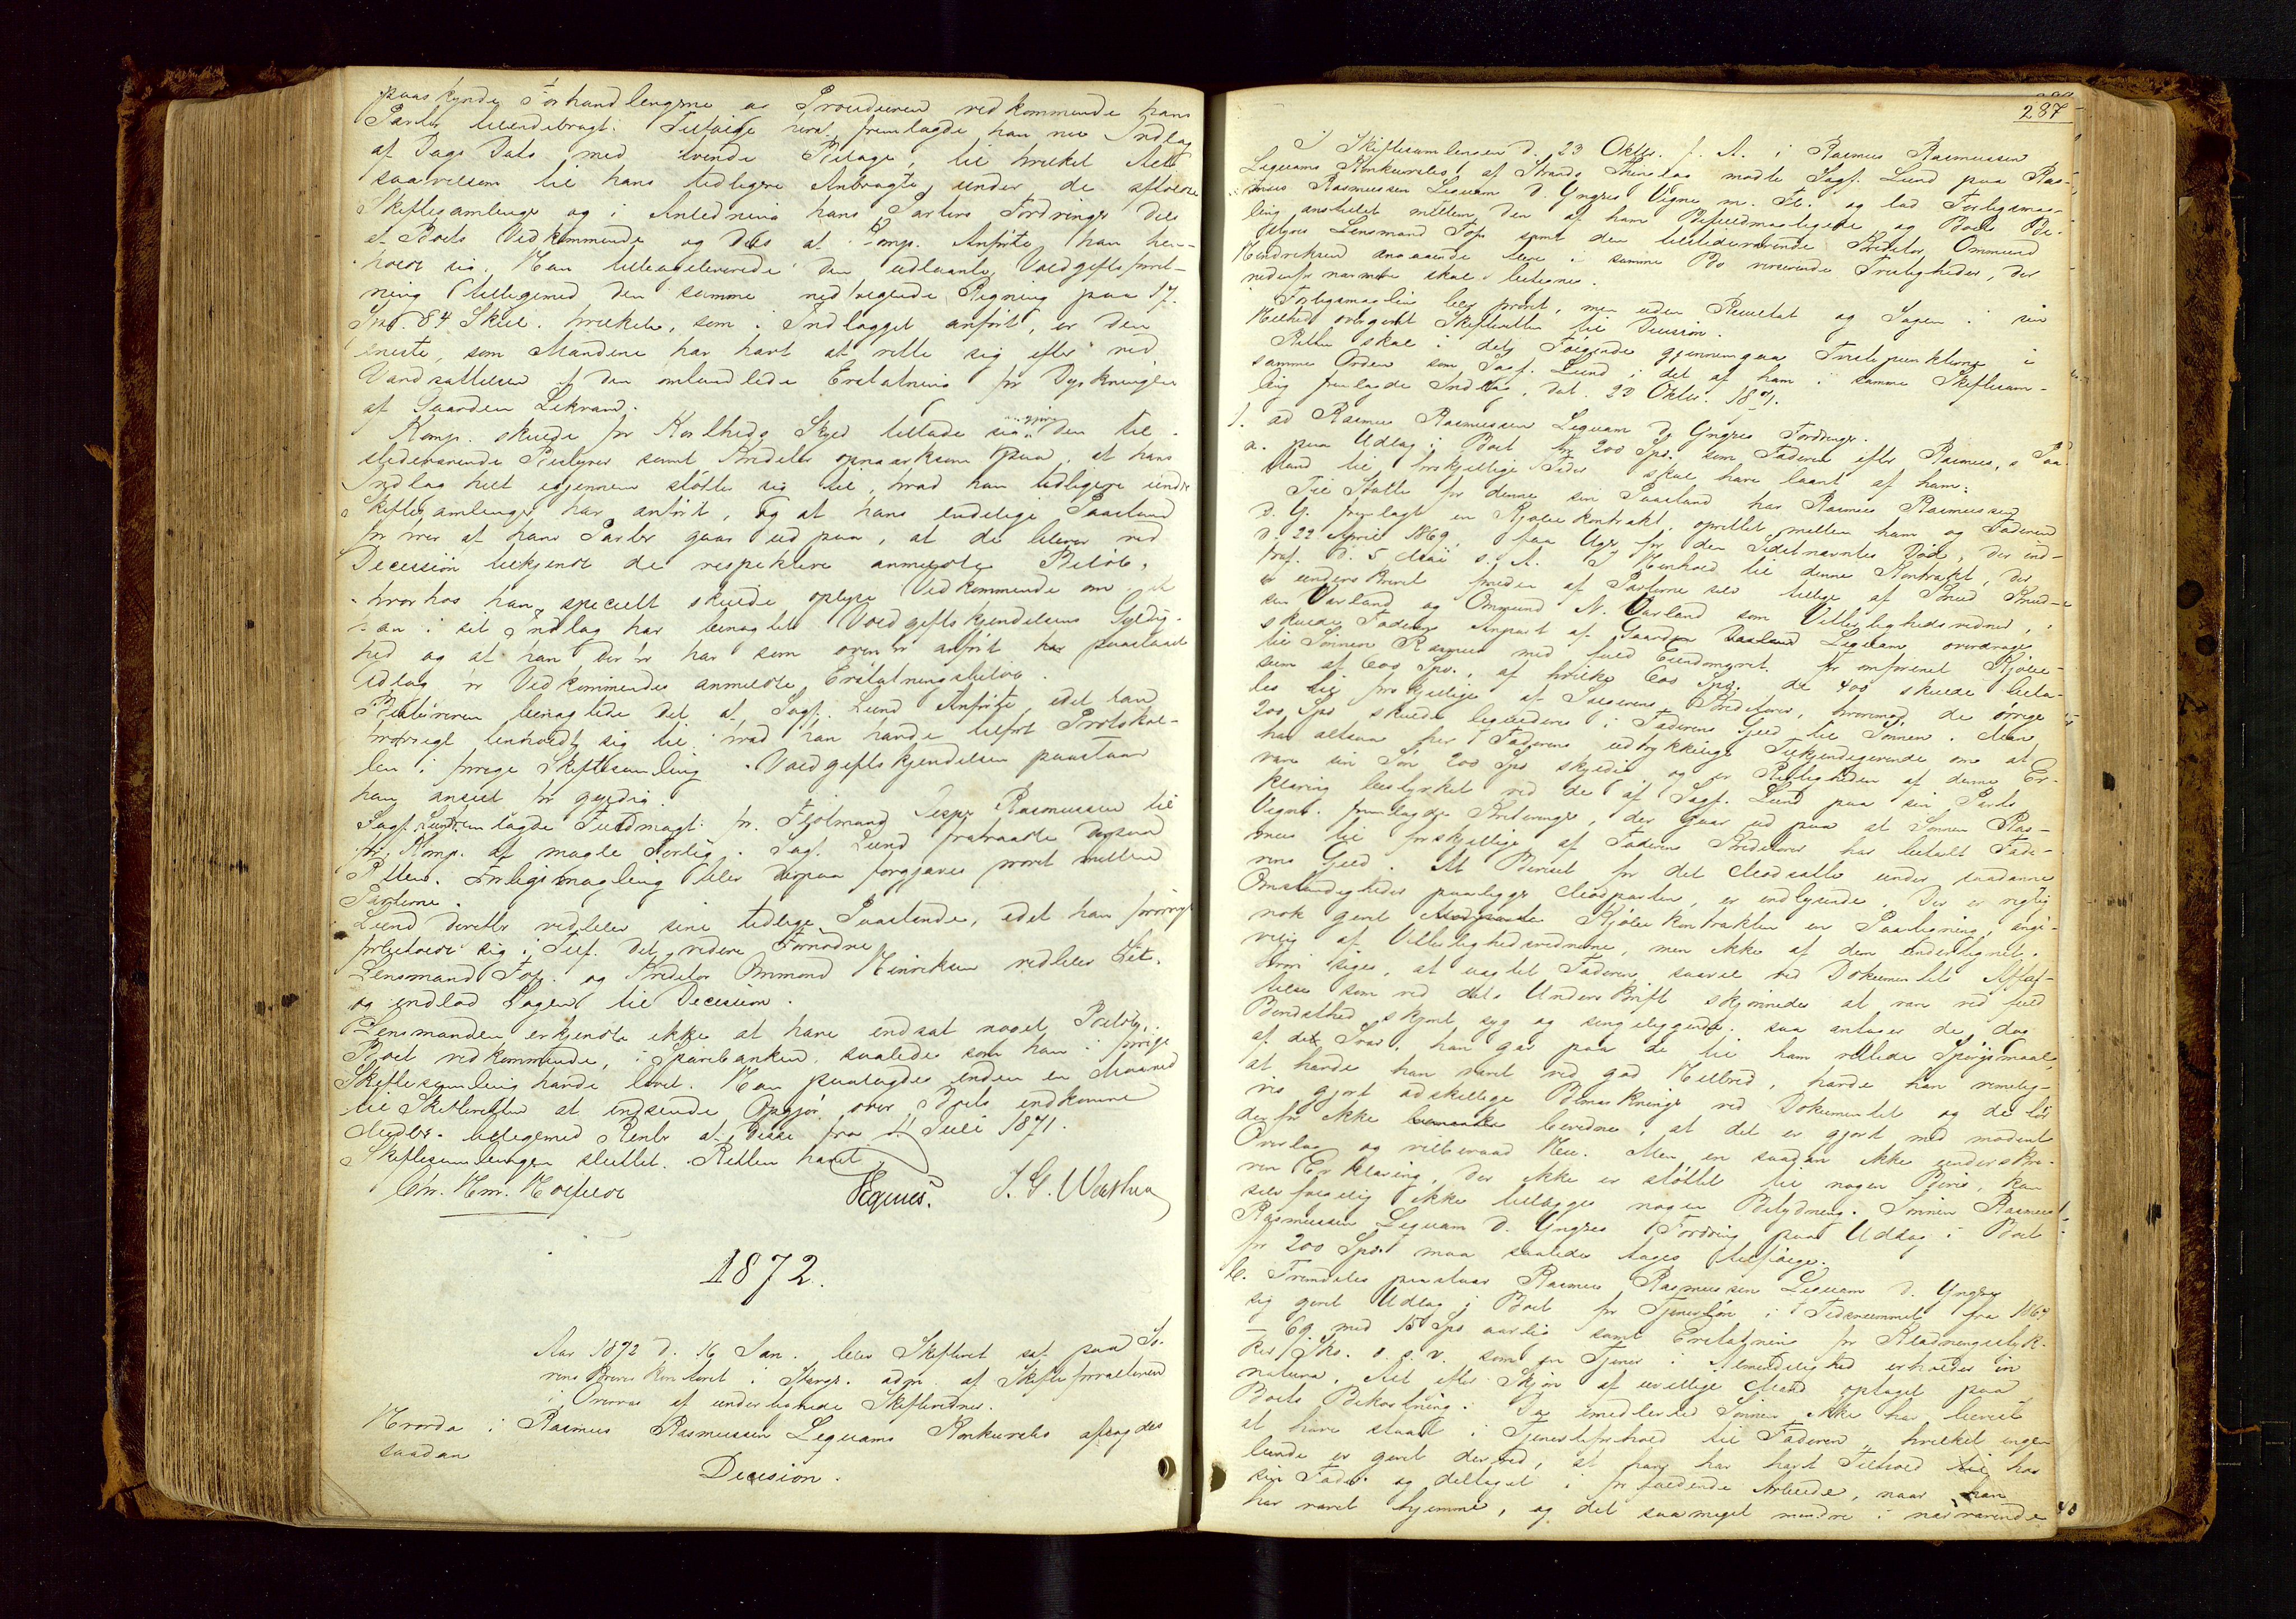 paaskynde Forhandlengerne og Proceduren vedkommende hans
Parter tilendebragt. Ifølge heraf fremlagde han nu Indlæg
af Dags Dato med tvende Bilage, til hvilket Alt
saavelsom til hans tidligere Anbragte under de afholdte
Skiftesamlinger og i Anledning hans Parters Fordringer dels
at Boets Vedkommende og dels at Comp. Anførte han hen-
holdt sig. Han tilbageleverede den udlaante Voldgiftsforret-
ning tilligemed den samme vedhæftede Regning paa 17
Spd. 84 Skil. hvilken, som i Indlægget anført, er den
eneste, som Mændene har havt at rette sig efter ved
Værdsættelsen af den omhandlede Erstatning for Dyrkningen
af Gaarden Lekvam.
Komp. skulde for Korthets Skyld tillade sig at gjøre den til-
stedeværende Bestyrer samt Kreditor opmærksom paa, at hans
Indlæg helt igjennem støtter sig til, hvad han tidligere under
Skiftesamlinger har anført, og at hans endelige Paastand
for hver af hans Parter gaar ud paa, at de bliver ved
Decission tilkjendt de respektive anmeldte Beløb,
hvorhos han specielt skulde oplyse Vedkommende om at
han i sit Indlæg har benægtet Voldgiftskjendelsens Gyldig-
hed og at han derfor har som ovenfor anført har paastaaet
Udlæg for Vedkommendes anmeldte Erstatningsbeløb.
Bestyreren benægtede det af Sagf. Lund Anførte, idet han
forøvrigt henholdt sig til hvad han havde tilført Protokol-
len i forrige Skiftesamling. Voldgiftskjendelsen paastaar
han anseet for gyldig.
Sagf. Lund fremlagde Fuldmagt fr. Fjelmand Jesper Rasmussen til
for Komp. at mægle Forlig. Sagf. Lund fratraadte derpaa
Retten. Forligsmægling blev derpaa forgjæves prøvet mellem
Parterne.
Lund derefter vedblev sine tidlige Paastande, idet han forøvrigt
forbeholdt sig i Tilf. det videre Fornødne.
Lensmand Fos. og Kreditor Ommund Henriksen vedblev Sit.
og indlod Sagen til Decision.
Lensmanden erkjendte ikke at have indsat noget Beløb,
Boet vedkommende, i Sparebanken, saaledes som han i forrige
Skiftesamling havde lovet. Han paalagdes inden en Maaned
til Skifteretten at indsende Opgjør over Boets indkomne
Midler tilligemed Renter af Disse fra 11 Juli 1871.
Skiftesamlingen sluttet. Retten hævet
Chr. Hm. Holfeldt Ræquas. J. G. Wathne
1872.
Aar 1872 d. 16 Jan. blev Skifteret sat paa So-
renskriverkontoret i Stavgr. adm. af Skifteforvalteren
i Overvær af undertegnede Skiftevidner.
Hvorda i Rasmus Rasmussen Lequams Konkursbo afsagdes
saadan
Decision.
287
I Skiftesamlingen d. 23 Oktbr. f. A. i Rasmus Rasmussen
Lequams Konkursbo af Strands Thinglag mødte Sagf. Lund paa Ras-
mus Rasmussen Lequam d. Yngres Vegne m. Fl. og lod Forligsmæg-
ling anstillet mellem den af ham Befuldmægtigede og Boets Be-
styrer Lensmand Fos samt den tilstedeværende Kreditor Ommund
Hendriksen angaaende flere i samme Bo værserende Tvistigheder, der
nedenfor nærmere skal betegnes.
Forligsmægling blev prøvet, men uden Resultat og Sagen i sin
Helhed overgivet Skifteretten til Decision.
Retten skal i det Følgende gjennemgaa Tvistepunkterne i
samme Orden som Sagf. Lund i det af ham i samme Skiftesam-
ling fremlagde Indlæg, dat. 23 Oktbr. 1871.
1. ad Rasmus Rasmussen Lequam d. Yngres Fordringer.
a. paa Udlæg i Boet for 200 Spd. som Faderen efter Rasmus,s Paa-
stand til forskjellige Tider skal have laant af ham.
Til Støtte for denne sin Paastand har Rasmus Rasmussen
d. Y. fremlagt en Kjøbekontrakt, oprettet mellem ham og Faderen
d. 22 April 1869, faa Uger før den Sidstnævntes Død, der ind-
traf d. 5 Mai s. A. I Henhold til denne Kontrakt, der
er underskrevet foruden af Parterne selv tillige af Knud Knud-
sen Varland og Ommund N. Varland som Vitterlighedsvidner,
skulde Faderens Anpart af Gaarden Lequam overdrages
til Sønnen Rasmus med fuld Eiendomsret for omforenet Kjøbe-
sum af 600 Spd., af hvilke 600 Spd. de 400 skulde beta-
les til forskjellige af Sælgerens Kreditorer, hvorimod de øvrige
200 Spd skulde liqvideres i Faderens Gjeld til Sønnen. Man
har altsaa her Faderens udtrykkelige Tilkjendegivende om at
være sin Søn 200 Spd skyldig, og er Rigtigheden af denne Er-
klæring bestyrket ved de af Sagf. Lund paa sin Parts
Vegne fremlagde Kvitteringer, der gaar ud paa at Sønnen Ras-
mus til forskjellige af Faderens Kreditorer har betalt Fade-
rens Gjeld. At Beviset for det Modsatte under saadanne
Omstændigheder paaligger Modparten, er indlysende. Der er rigtig
nok givet Kjøbekontrakten en Paategning, angi-
velig af Vitterlighedsvidnerne, men ikke af dem undertegnet,
hvori siges, at uagtet Faderen saavel ved Dokumentets Affat-
telse som ved dets Underskrift skjønnedes at være ved fuld
Bevidsthed, skjønt syg og sengeliggende, saa antager de dog
af det Svar, han gav paa de til ham rettede Spørgsmaal,
at havde han været ved god Helbred, havde han rimelig-
vis gjort adskillige Bemærkninger ved Dokumentet og de tør
derfor ikke bevidne, at det er gjort med modent
Overlæg og velberaad Hu. Men en saadan ikke underskre-
ven Erklæring, der ikke er støttet til nogen Bevis, kan
selvfølgelig ikke tillægges nogen Betydning. Sønnen Rasmus
Rasmussen Lequam d. Yngres Fordring paa Udlæg i Boet
for 200 Spd. maa saaledes tages tilfølge.
b. Fremdeles paastaar Rasmus Rasmussen Lequam d. Yngre
sig givet Udlæg i Boet for Tjenerløn i Tidsrummet fra 1867
– 69 med 15 Spd aarlig samt Erstatning for Klædningsstyk-
ker, Sko o. s. v. som en Tjener i Almindelighed erholder in
natura, Alt efter Skjøn af uvillige Mænd optaget paa
Boets Bekostning. Da imidlertid Sønnen ikke har bevist
at have staaet i Tjenesteforhold til Faderen, hvilket ingen-
lunde er givet derved, at han har havt Tilhold hos
sin Fader og deltaget i forfaldende Arbeide, naar han
har været hjemme, og det saameget mindre i nærværende